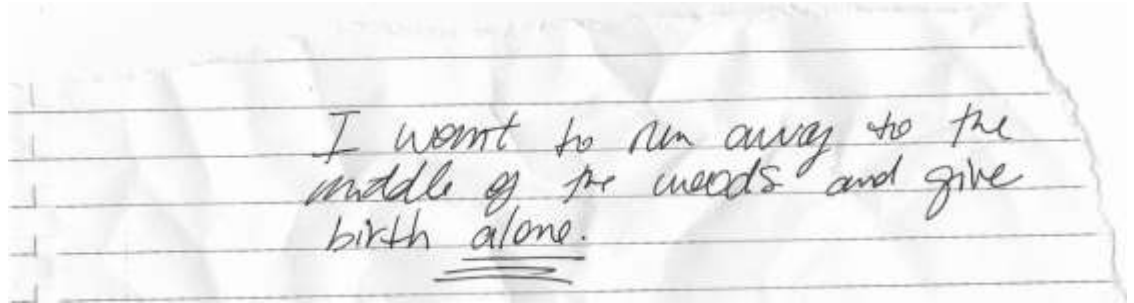 I want to run away to the
middle of the woods and give
birth alone.